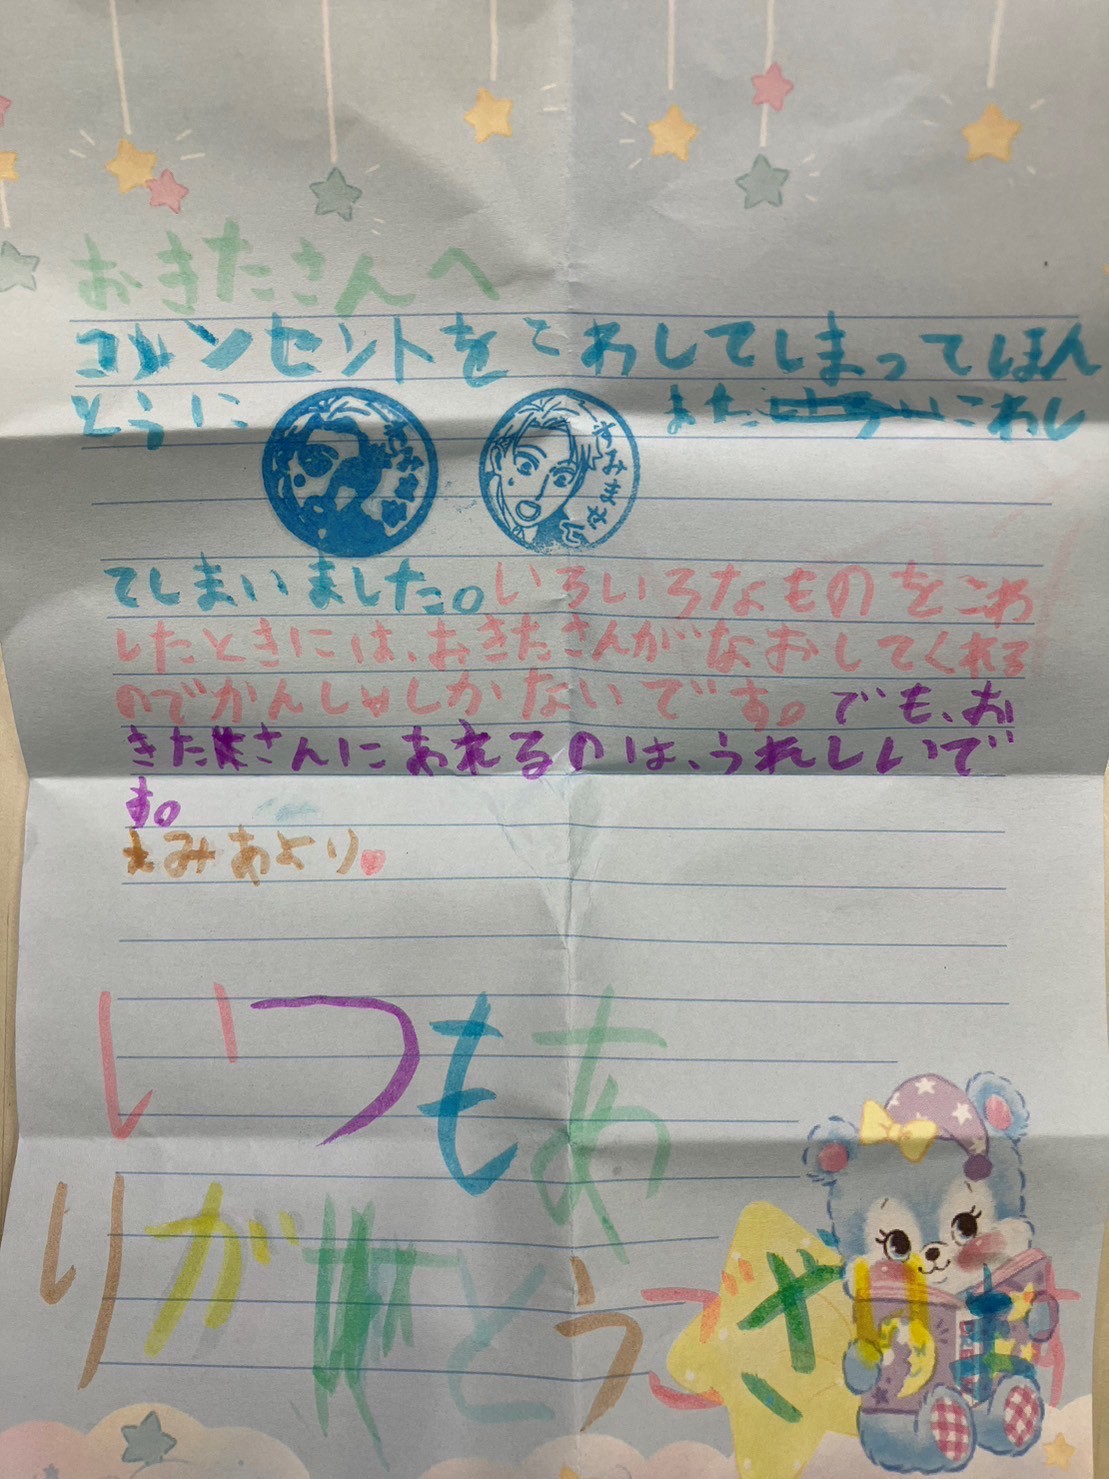 おきたさんへ
コンセントをこわしてしまってほん
とうに すみません また こわし
てしまいました。いろいろなものをこわ
したときには、おきたさんがなおしてくれる
のでかんしゃしかないです。でも、お
きたさんにあえるのは、うれしいで
す。
えみあより
いつもあ
りがとうござ
います